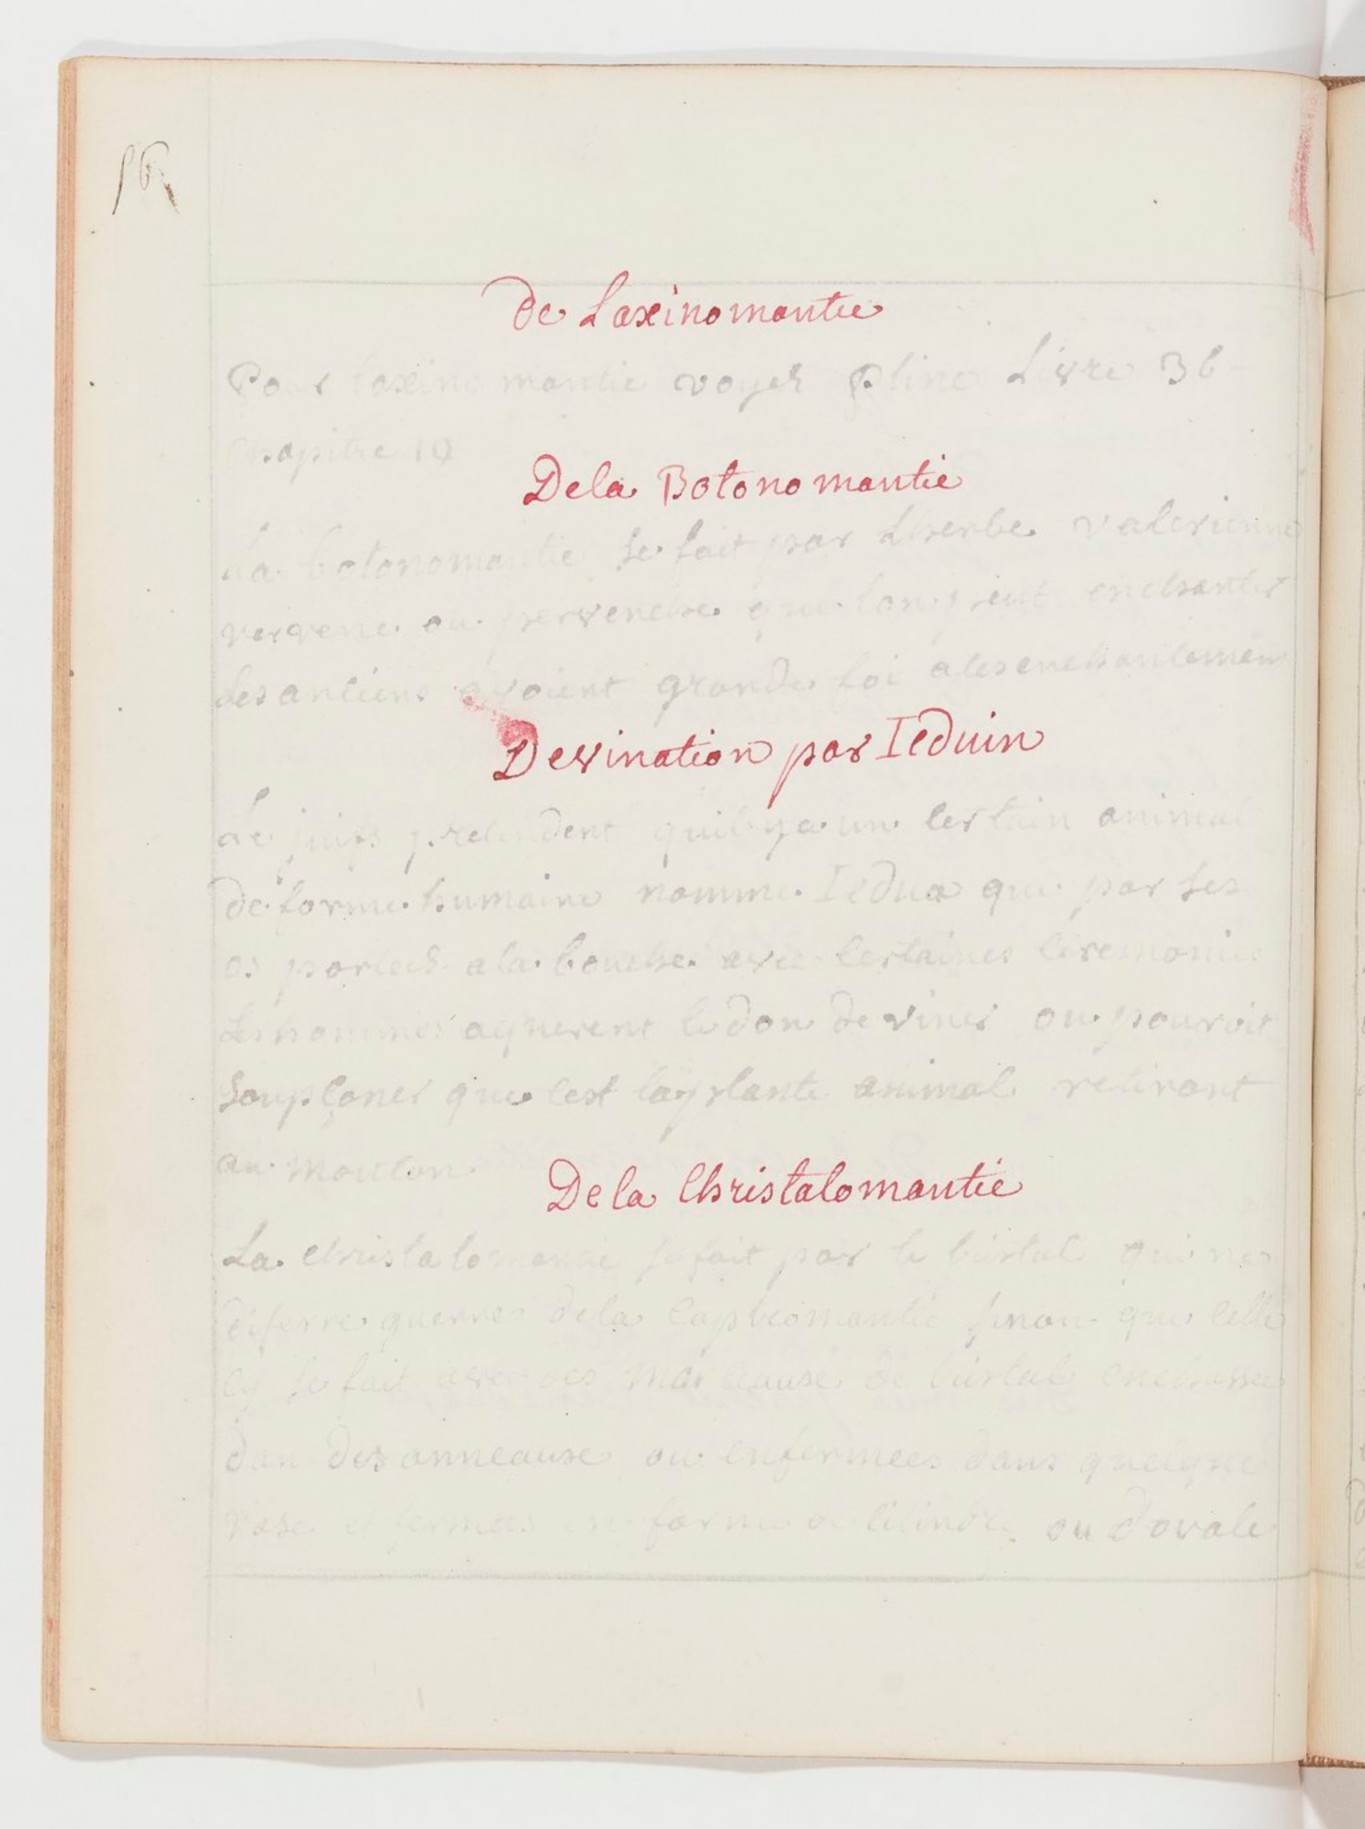 56
De Laxinomantie
Pour laxinomantie voyez Pline Livre 36
Chapitre 19
De la Botonomantie
La botonomantie se fait par Lherbe valerienne
vervene ou pervenche que lon peut enchanter
les anciens avoient grande foi a les enchantemen
Devination par Ieduin
Le juifs pretendent quil y a un certain animal
de forme humaine nomme Iedua que par ses
os portees a la bouche avec certaines ceremonies
les hommes aquerent le don de viner ou pouroit
soupçoner que cest la plante animal retirant
au mouton
De la Christalomantie
La christalomansie se fait par le cristal qui ne
diferre guerres de la Captromantie sinon que celle
cy se fait avec des morceause de cristal enchassee
dan des anneause ou enfermees dans quelque
vase et formees en forme de cilindre ou d'ovale